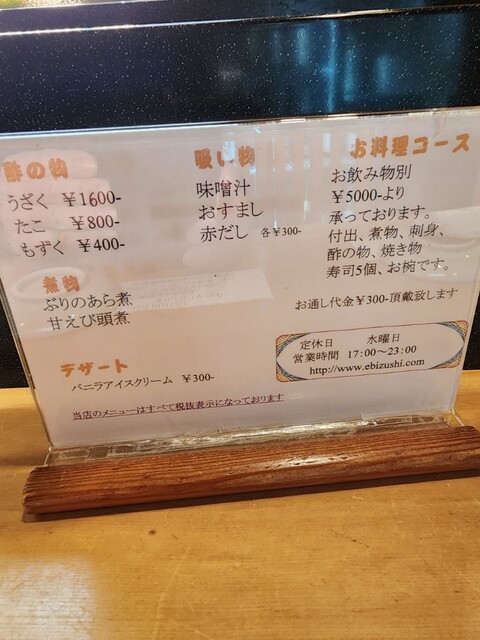 酢の物
うざく ￥1600-
たこ ￥800-
もずく ￥400-
煮物
ぶりのあら煮
甘えび頭煮
デザート
バニラアイスクリーム ￥300-
当店のメニューはすべて税抜表示になっております
吸い物
味噌汁
おすまし
赤だし 各￥300-
お料理コース
お飲み物別
￥5000-より
承っております。
付出、煮物、刺身、
酢の物、焼き物
寿司5個、お椀です。
お通し代金￥300-頂戴致します
定休日 水曜日
営業時間 17:00～23:00
http://www.ebizushi.com